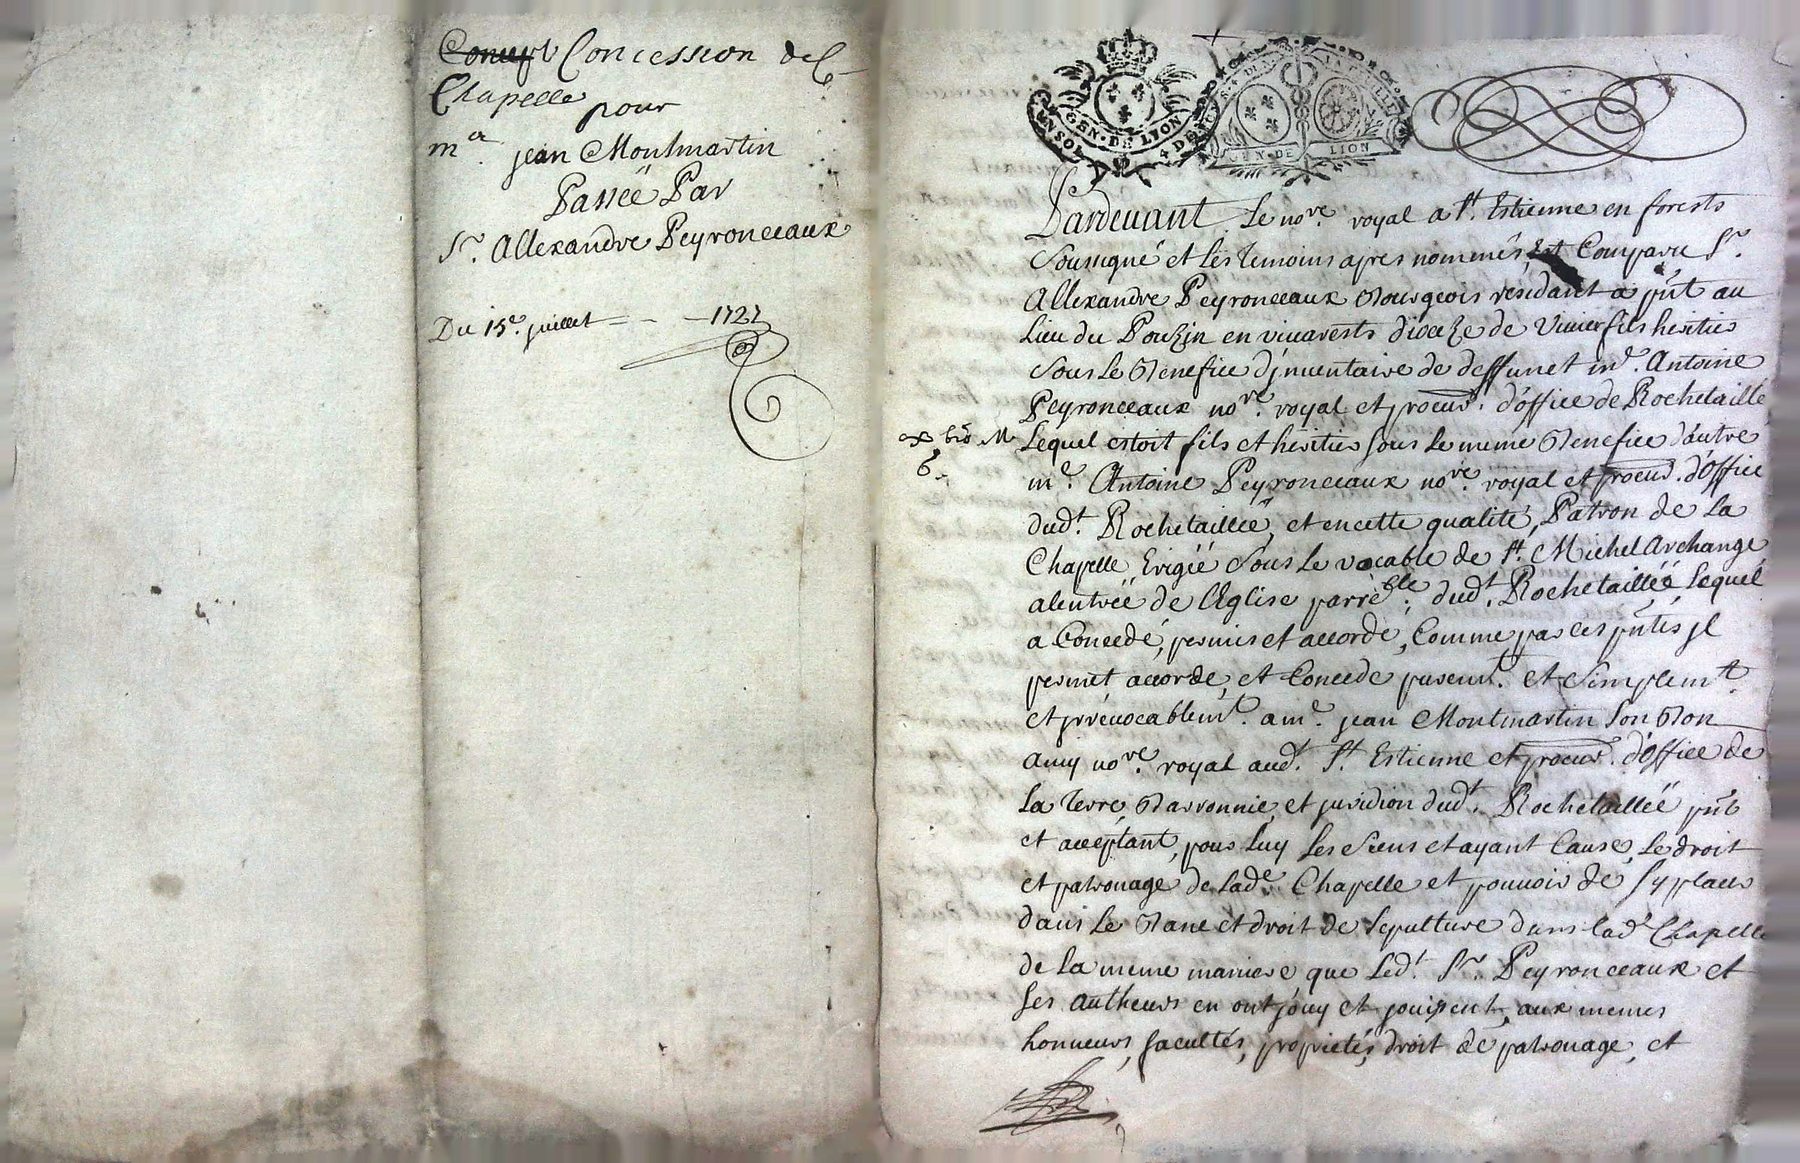 Concession de
Chapelle
pour
me. jean Montmartin
Passée Par
Sr. Allexandre Peyronceaux
Du 15e. juillet - - 1727
GEN. DE LYON
GEN. DE LION
Pardevant Le nore. royal a St. Estienne en forests
Soussigné et les temoins apres nommés, Est Comparu Sr.
Allexandre Peyronceaux Bourgeois residant a pñt au
Lieu du Pouzin en vivarests dioceze de Vivier fils heritier
Sous Le Benefice d'jnventaire de deffunct me. Antoine
Peyronceaux nore. royal et procur. d'office de Rochetaillé
Lequel estoit fils et heritier sous Le meme Benefice d'autre
me. Antoine Peyronceaux nore. royal et procur. d'office
dudt. Rocheitaillée, et en cette qualité, Patron de La
Chapelle Erigée Sous Le vocable de St. Michel Archange
alentrée de l'Eglise parreble. dudt. Rochetaillée, Lequel
a Concedé, permis et accordé, Comme par ces pñtes jl
permet accorde, et Concede puremt. et Simplemt.
et jrrevocablemt. a me. jean Montmartin Son Bon
amy nore. royal aud. St. Estienne et procur. d'office de
La Terre, Baronnie, et juridion dudt. Rochetaillée pñt
et acceptant, pour Luy Les Siens et ayant Cause, Le droit
et patronage de Lade. Chapelle et pouvoir de Sy placer
dans Le Banc et droit de Sepulture dans lade Chapelle
de La meme maniere que Ledt. Sr. Peyronceaux et
Ses autheurs en ont jouy et jouissent, aux memes
honneurs, facultés, proprietés, droit de patronage, et